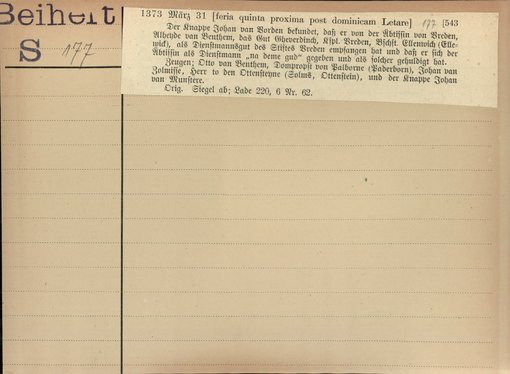 Beiheft
S 177
1373 März 31 [feria quinta proxima post dominicam Letare] 177. [543
Der Knappe Johan van Vorden bekundet, daß er von der Äbtissin von Vreden,
Alheyde van Benthem, das Gut Gheverdinch, Kspl. Vreden, Bschft. Ellenwich (Elle-
wick), als Dienstmannsgut des Stiftes Vreden empfangen hat und daß er sich der
Äbtissin als Dienstmann „na deme gud“ gegeben und als solcher gehuldigt hat.
Zeugen: Otto van Benthem, Dompropst von Palborne (Paderborn), Johan van
Zolmisse, Herr to den Ottensteyne (Solms, Ottenstein), und der Knappe Johan
van Munstere.
Orig. Siegel ab; Lade 220, 6 Nr. 62.